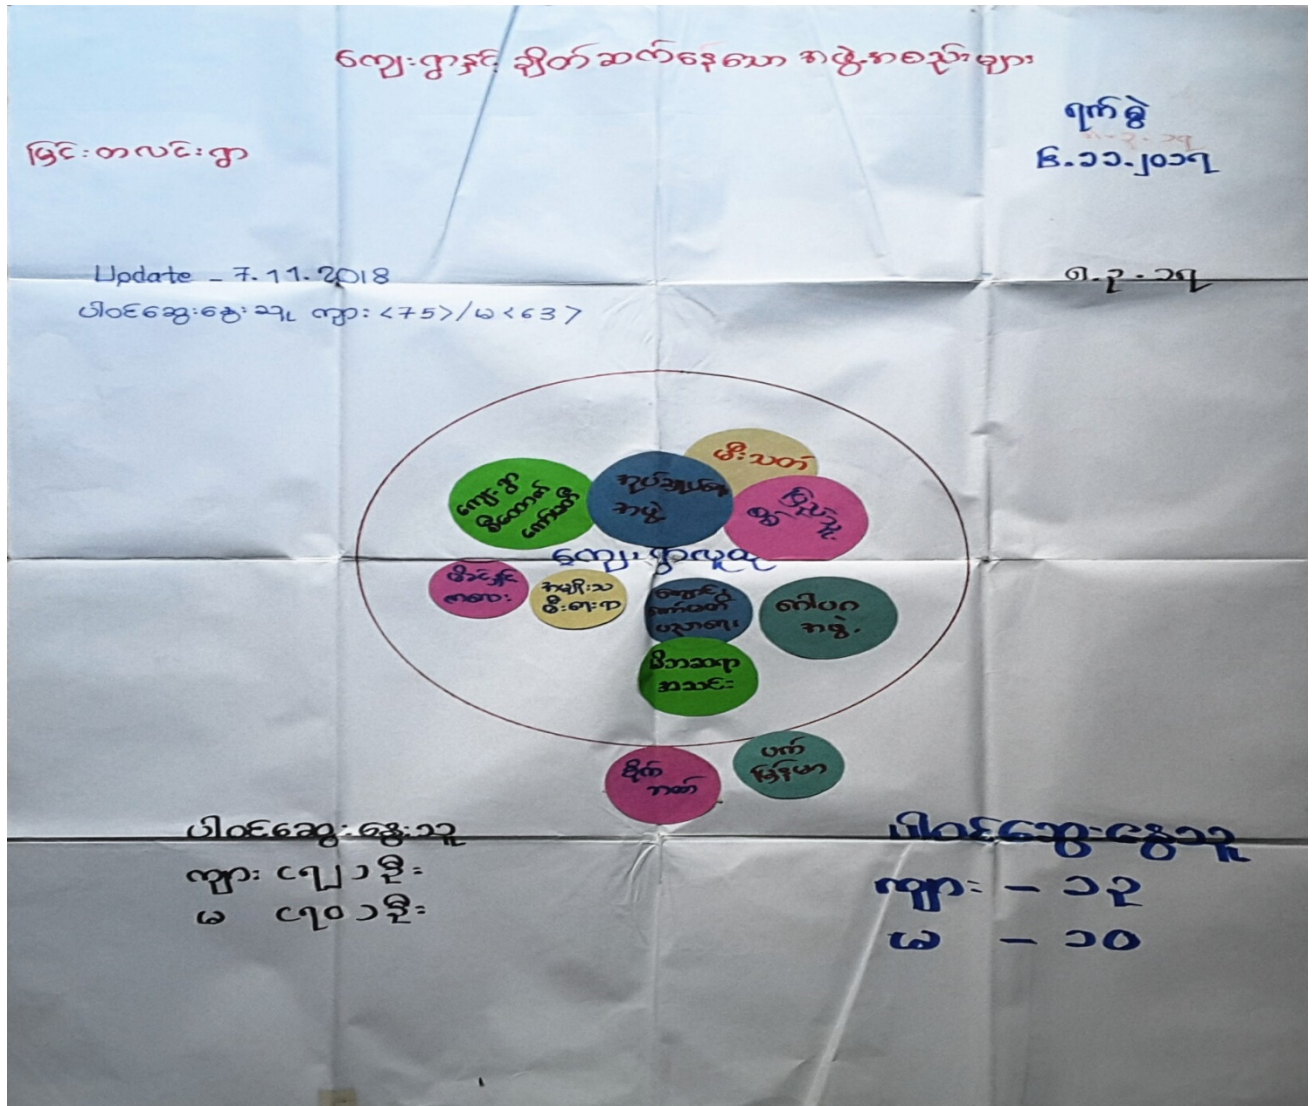 ကျေးရွာနှင့် ချိတ်ဆက်နေသော အဖွဲ့အစည်းများ
ရက်စွဲ
မြင်းတလင်းရွာ
၆.၁၁.၂၀၁၇
Update - 7.11.2018
၈.၃.၁၇
ပါဝင်ဆွေးနွေးသူ ကျား <75>/မ <63>
မီးသတ်
ကျေးရွာ
စီထောက်
ကော်မတီ
အုပ်ချုပ်ရေး
အဖွဲ့
ပြည်သူ့
ကျေးရွာလူထု
မိခင်နှင့်
ကလေး
အမျိုးသ
မီးရေးရာ
ကော်မတီ
ပညာရေး
ဂေါပက
အဖွဲ့
မိဘဆရာ
အသင်း
စိုက်
ပက်
မြန်မာ
ပါဝင်ဆွေးနွေးသူ
ကျား (၅၂) ဦး
မ (၇၀) ဦး
ပါဝင်ဆွေးနွေးသူ
ကျား - ၁၃
မ - ၁၀